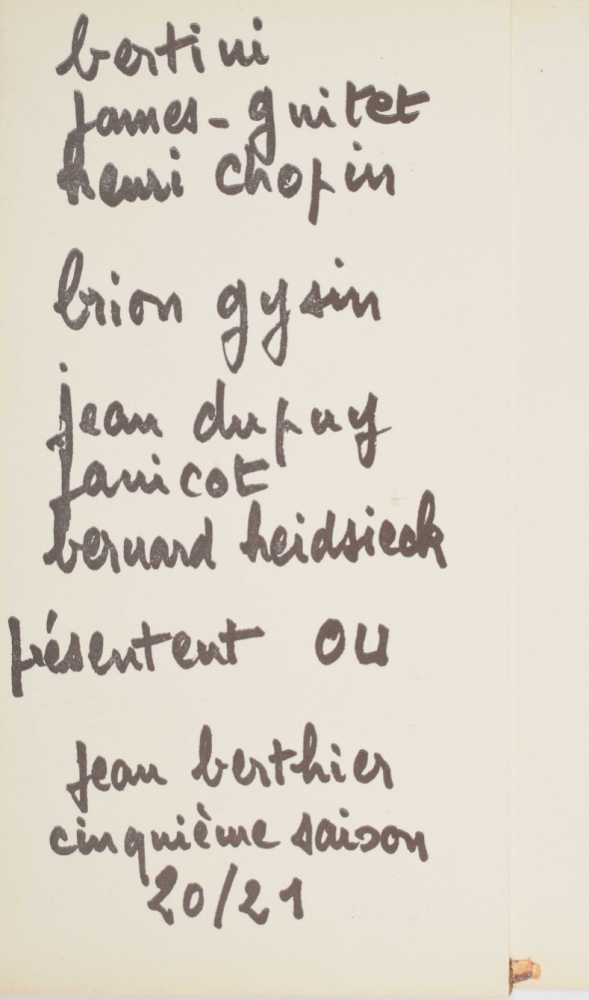 bertini
james-guitet
henri chopin
brion gysin
jean dupuy
janicot
bernard heidsieck
présentent OU
jean berthier
cinquième saison
20/21